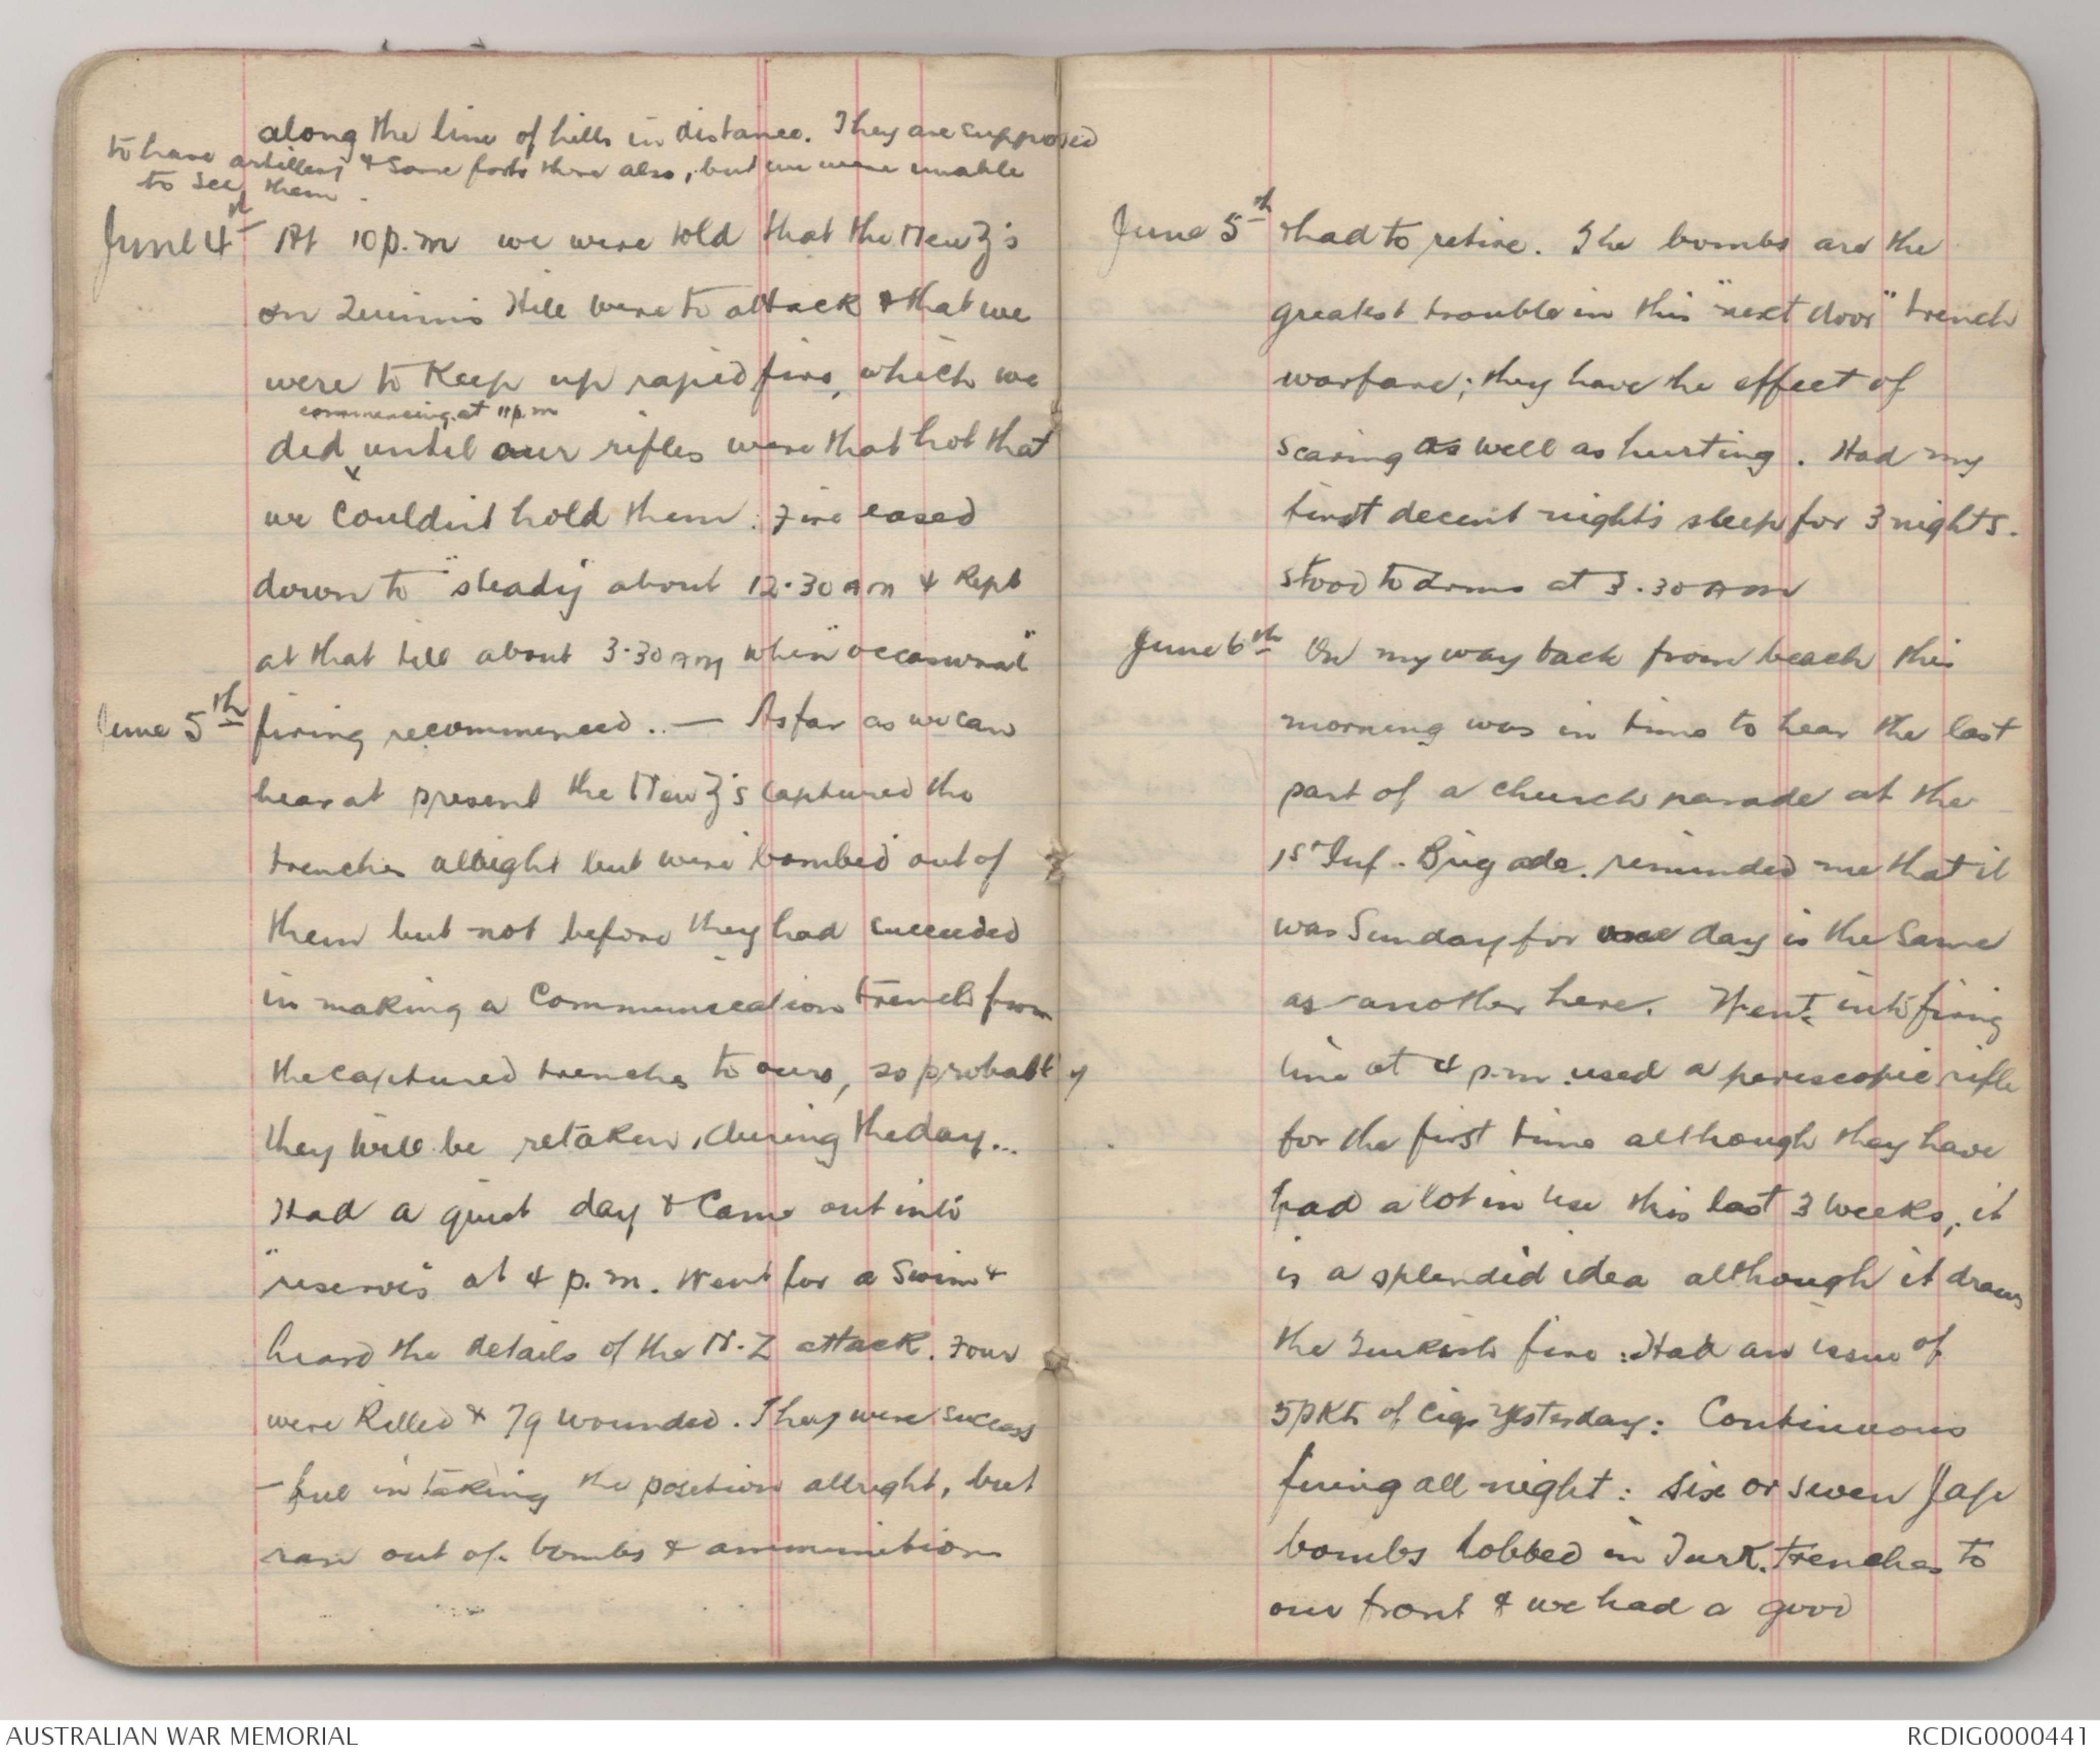 along the line of hills in distance. They are supposed
to have artillery & some forts there also, but we were unable
to see them.
June 4th At 10 p.m we were told that the New Z's
on Quinn's Hill were to attack & that we
were to keep up rapid fire, which we
commencing at 11 p.m
did until our rifles were that hot that
we couldn't hold them. Fire eased
down to "steady" about 12.30 AM & kept
at that till about 3.30 AM when "occasional"
June 5th firing recommenced.. — As far as we can
hear at present the New Z's captured the
trenches allright but were bombed out of
them but not before they had succeeded
in making a communication trench from
the captured trenches to ours, so probably
they will be retaken, during the day...
Had a quiet day & came out into
"reserves" at 4 p.m. Went for a swim &
heard the details of the N.Z attack. Four
were killed & 79 wounded. They were success
-ful in taking the position allright, but
ran out of bombs & ammunition
June 5th & had to retire. The bombs are the
greatest trouble in this "next door" trench
warfare; they have the effect of
scaring as well as hurting. Had my
first decent night's sleep for 3 nights.
Stood to arms at 3.30 AM
June 6th On my way back from beach this
morning was in time to hear the last
part of a church parade at the
1st Inf. Brigade. reminded me that it
was Sunday for one day is the same
as another here. Went into firing
line at 4 p.m. used a periscopic rifle
for the first time although they have
had a lot in use this last 3 weeks, it
is a splendid idea although it draws
the Turkish fire: Had an issue of
5 pkts of cigs yesterday: Continuous
firing all night: six or seven Jap
bombs lobbed in Turk. trenches to
our front & we had a good
AUSTRALIAN WAR MEMORIAL
RCDIG0000441